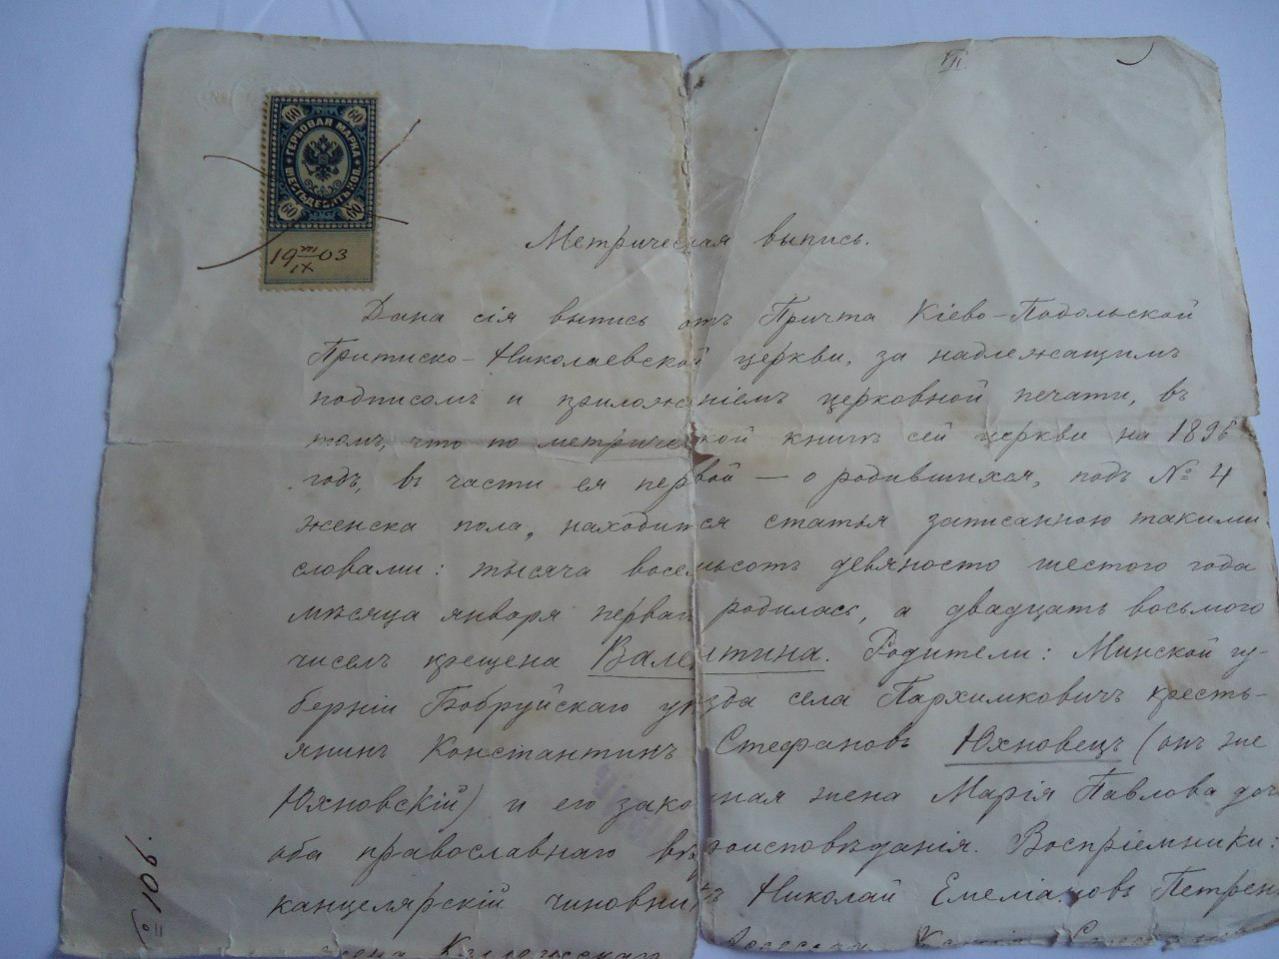 VII
60 60
ГЕРБОВАЯ МАРКА
ШЕСТЬДЕСЯТЪ КОП.
60 60
19 VIII/IX 03
Метрическая выпись.
Дана сія выпись отъ Причта Кіево-Подольской
Притиско-Николаевской церкви, за надлежащимъ
подписомъ и приложеніемъ церковной печати, въ
томъ, что по метрической книгѣ сей церкви на 1896
годъ, въ части ея первой — о родившихся, подъ № 4
женска пола, находится статья записанною такими
словами: тысяча восемьсотъ девяносто шестого года
мѣсяца января родилась, а двадцать восьмого
чиселъ крещена Валентина. Родители: Минской гу-
берніи Бобруйскаго уѣзда села Пархимковичъ кресть-
янинъ Константинъ Стефановъ Юхновецъ (онъ же
Юхновскій) и его законная жена Марія Павлова
оба православнаго вѣроисповѣданія. Воспріемники:
канцелярскій чиновникъ Николай Емеліановъ
№ 106.